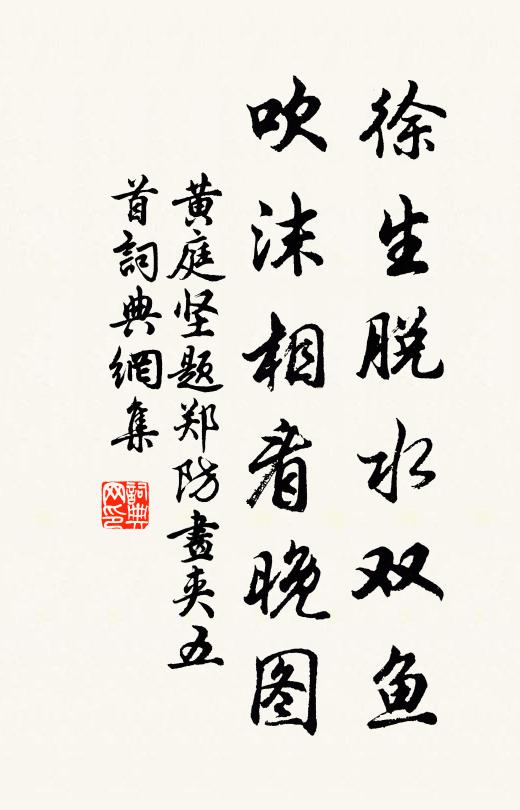 徐生脱水双鱼
吹沫相看晚图
黄庭坚题郑防畫夹五
首詞典網集
詞典网印